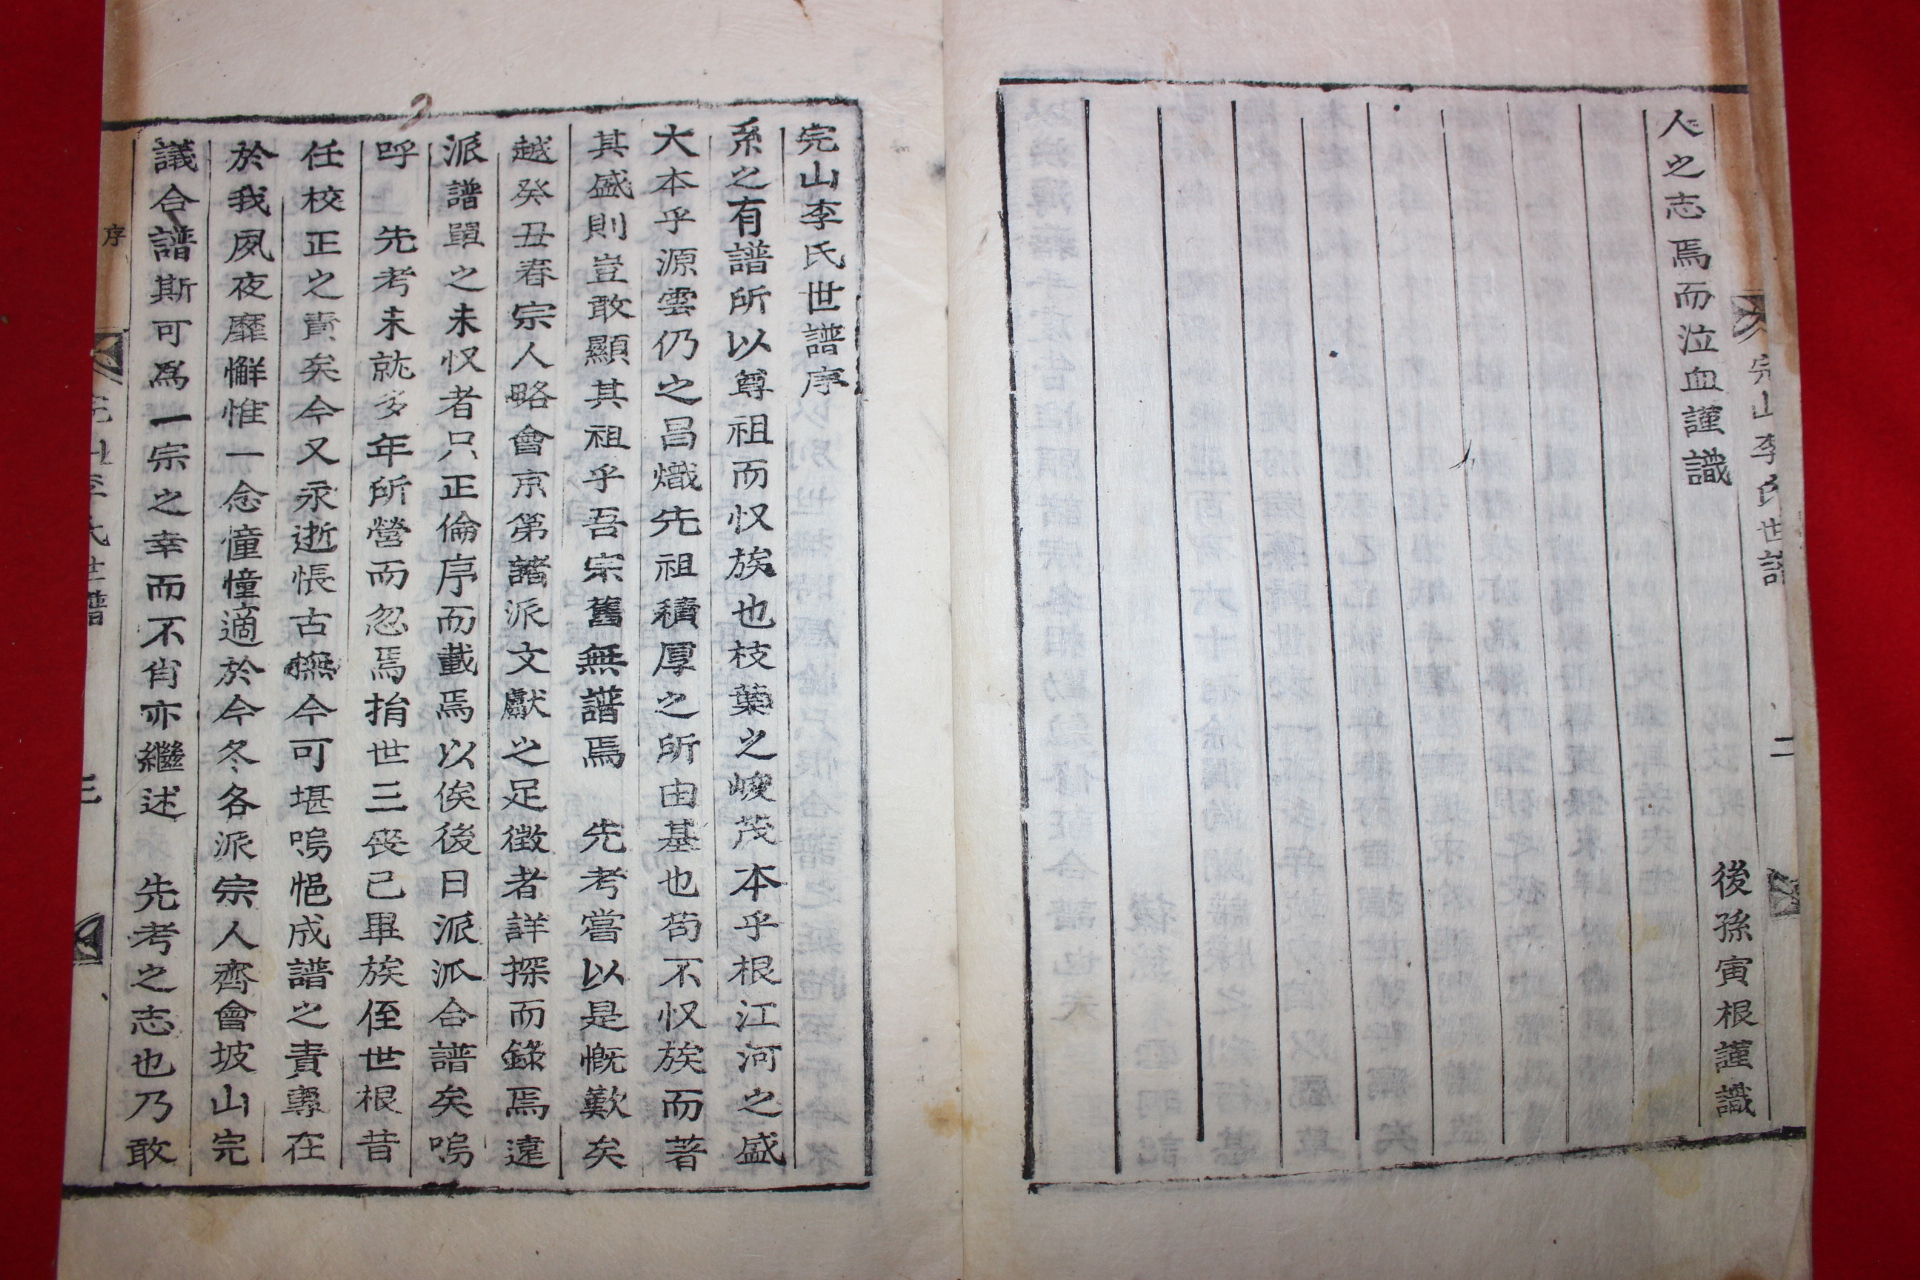 人之志焉而泣血謹識
後孫寅根謹識
完山李氏世譜
二
完山李氏世譜序
系之有譜所以尊祖而収族也枝葉之峻茂本乎根江河之盛
大本乎源雲仍之昌熾先祖積厚之所由基也苟不収族而著
其盛則豈敢顯其祖乎吾宗舊無譜焉 先考嘗以是慨歎矣
越癸丑春宗人略會京第諸派文獻之足徵者詳探而錄焉遠
派譜單之未収者只正倫序而載焉以俟後日派派合譜矣嗚
呼 先考未就多年所營而忽焉捐世三喪已畢族侄世根昔
任校正之責矣今又永逝悵古撫今可堪嗚悒成譜之責專在
於我夙夜靡懈惟一念憧憧適於今冬各派宗人齊會坡山完
議合譜斯可爲一宗之幸而不肖亦繼述 先考之志也乃敢
序
完山李氏世譜
三